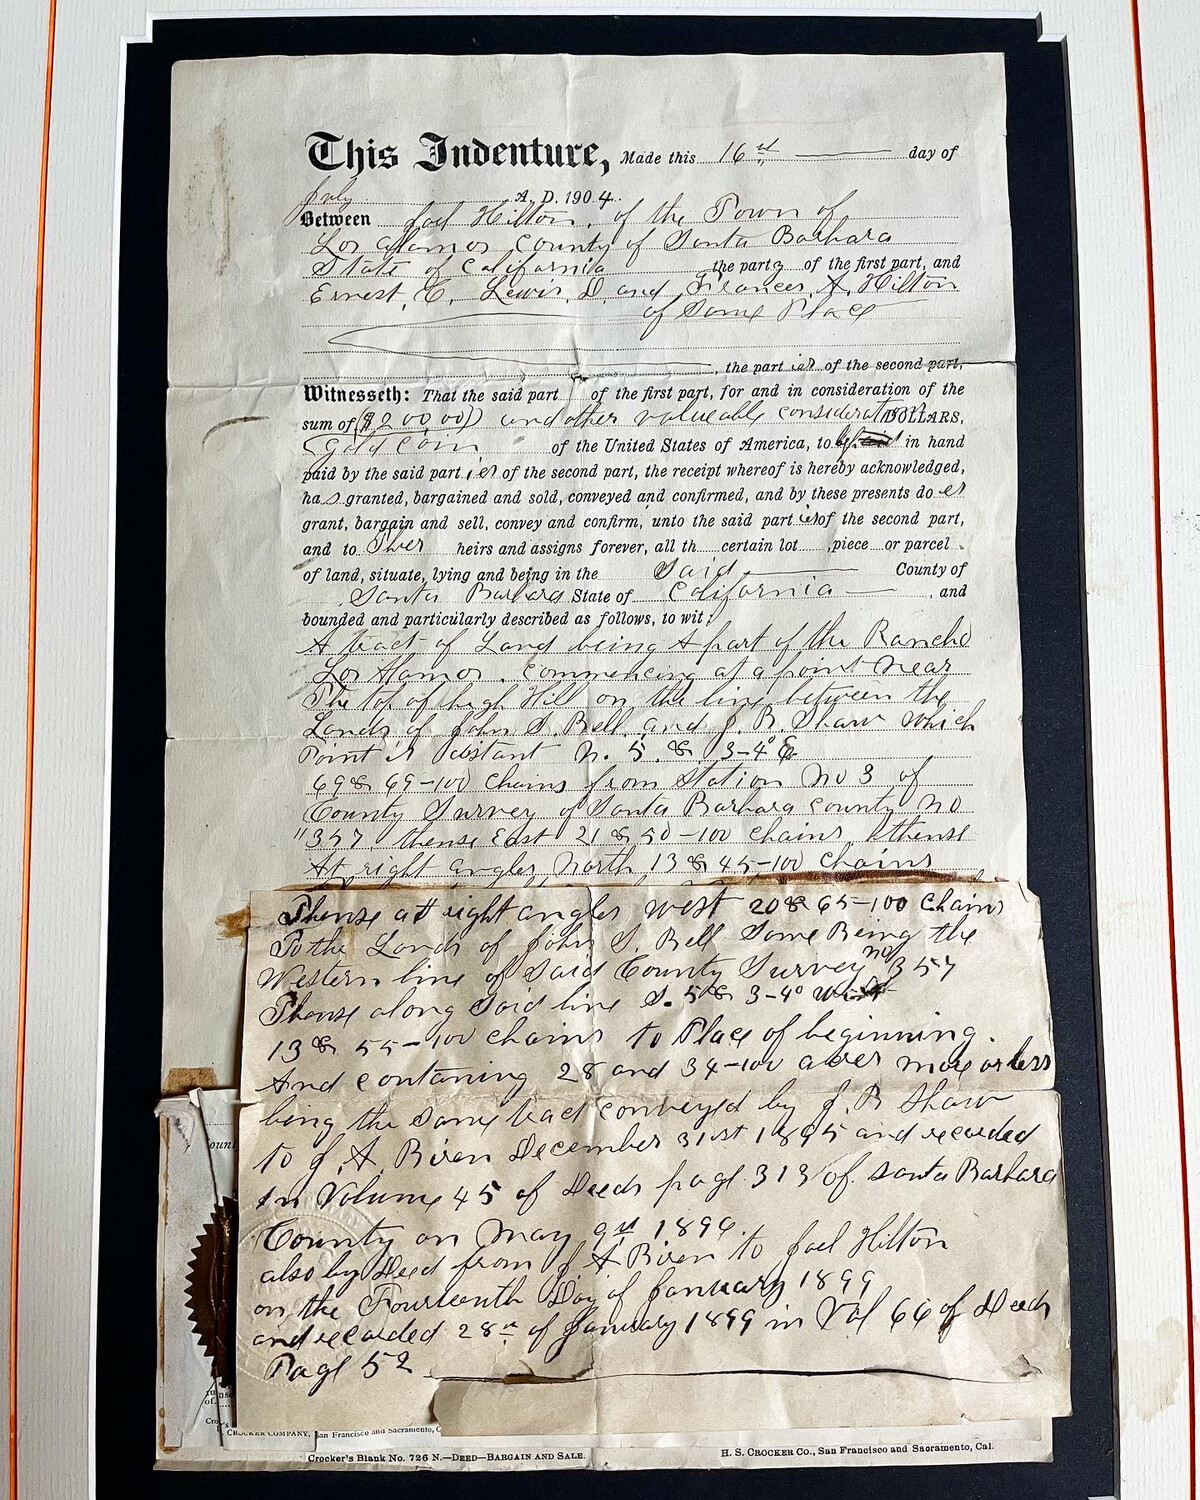 This Indenture, Made this 16th day of
July A. D. 1904
Between Joel Hilton, of the Town of
Los Alamos County of Santa Barbara
State of California the party of the first part, and
Ernest, C. Lewis, D. and Frances, A. Hilton
of Same Place
, the part ies of the second part,
Witnesseth: That the said part of the first part, for and in consideration of the
sum of ($200 00) and other valueable consideration DOLLARS,
Gold Coin of the United States of America, to in hand
paid by the said part ies of the second part, the receipt whereof is hereby acknowledged,
has granted, bargained and sold, conveyed and confirmed, and by these presents do es
grant, bargain and sell, convey and confirm, unto the said part ies of the second part,
and to Ther heirs and assigns forever, all th certain lot , piece or parcel
of land, situate, lying and being in the Said County of
Santa Barbara State of California , and
bounded and particularly described as follows, to wit:
A tract of Land being A part of the Rancho
Los Alamos. Commencing at a point Near
The top of high Hill on the line between the
Lands of John S. Bell, and J. R. Shaw which
Point is distant N. 5. & 3-4° E
69 & 69-100 Chains from Station No 3 of
County Survey of Santa Barbara County No
"357 thense East 21 & 50-100 Chains, thense
At right angles, North 13 & 45-100 Chains
Thense at right angles west 20 & 65-100 Chains
To the Lands of John S. Bell Same Being the
Western line of Said County Survey no 357
Thense along Said line S. 5 & 3-4° W
13 & 55-100 chains to Place of beginning.
And contaning 28 and 34-100 acres more or less
being the same tract conveyed by J. R Shaw
to J. A. Biven December 31st 1895 and recorded
in Volume 45 of Deeds page 313 of Santa Barbara
County on May 9th 1896.
also by Deed from J A Biven to Joel Hilton
on the Fourteenth Day of January 1899
and recorded 28th of January 1899 in Vol 66 of Deeds
Page 52
CROCKER COMPANY, San Francisco and Sacramento, C
Crocker's Blank No. 726 N.—DEED—BARGAIN AND SALE. H. S. CROCKER Co., San Francisco and Sacramento, Cal.